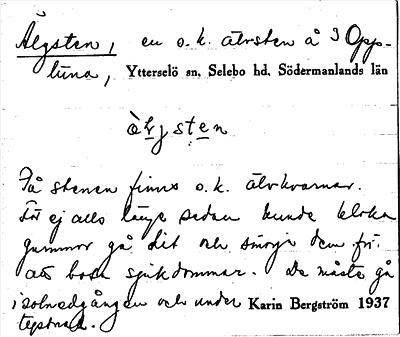 Älgsten, en s.k. älvsten å 3 Opp-
luna, Ytterselö sn, Selebo hd, Södermanlands län
På stenen finns s.k. älvkvarnar.
För ej alls länge sedan kunde kloka
gummor gå dit och smörja dem för
att bota sjukdommar. De måste gå
i solnedgången och under Karin Bergström 1937
tystnad.